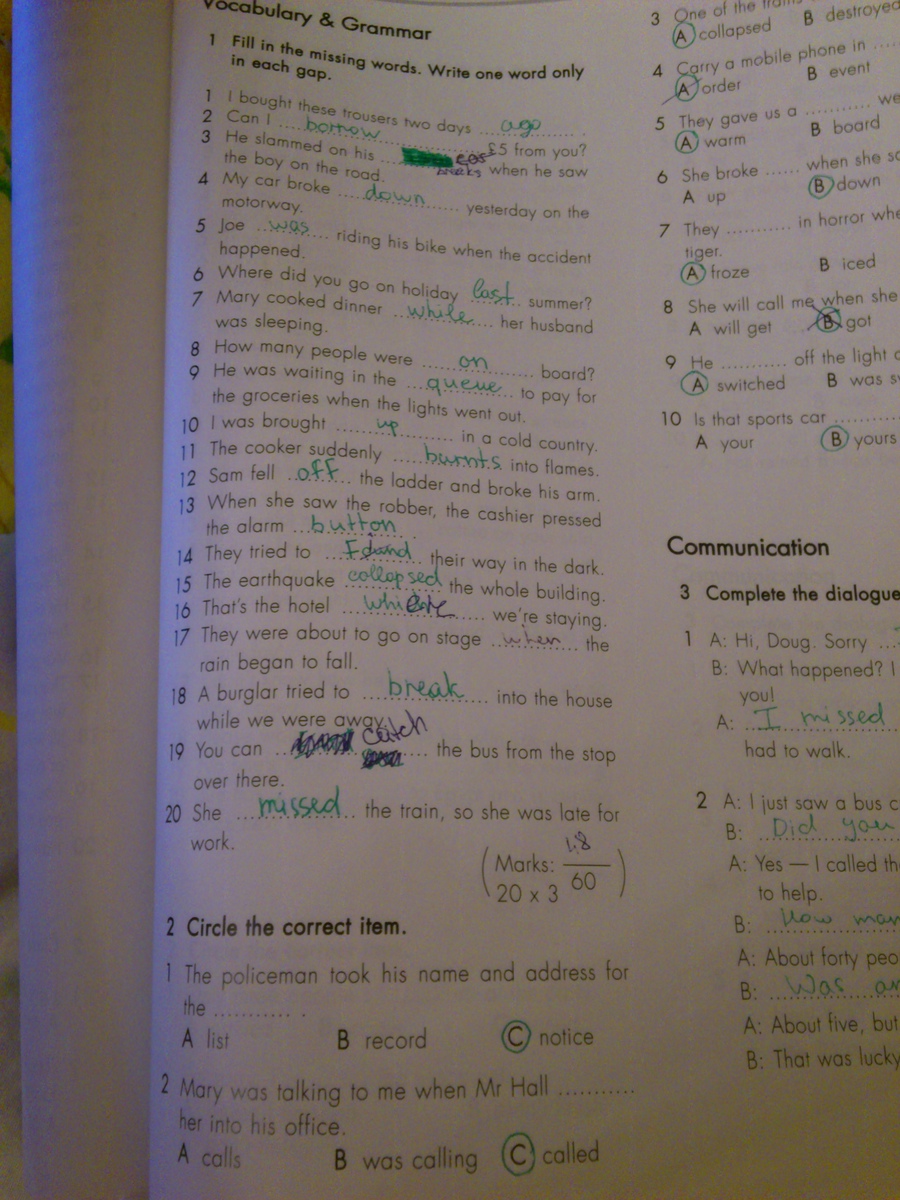 Vocabulary & Grammar
1 Fill in the missing words. Write one word only
in each gap.
1 I bought these trousers two days ago .
2 Can I borrow £5 from you?
3 He slammed on his when he saw
the boy on the road.
4 My car broke down yesterday on the
motorway.
5 Joe was riding his bike when the accident
happened.
6 Where did you go on holiday last summer?
7 Mary cooked dinner while her husband
was sleeping.
8 How many people were on board?
9 He was waiting in the queue to pay for
the groceries when the lights went out.
10 I was brought up in a cold country.
11 The cooker suddenly burnts into flames.
12 Sam fell off the ladder and broke his arm.
13 When she saw the robber, the cashier pressed
the alarm button .
14 They tried to their way in the dark.
15 The earthquake collapsed the whole building.
16 That's the hotel we're staying.
17 They were about to go on stage when the
rain began to fall.
18 A burglar tried to break into the house
while we were away.
19 You can catch the bus from the stop
over there.
20 She missed the train, so she was late for
work.
(Marks: 18/60)
20 x 3
2 Circle the correct item.
1 The policeman took his name and address for
the ........... .
A list B record C notice
2 Mary was talking to me when Mr Hall ...........
her into his office.
A calls B was calling C called
3 One of the
A collapsed B destroyed
4 Carry a mobile phone in ....
A order B event
5 They gave us a ........... we
A warm B board
6 She broke ...... when she
A up B down
7 They ........... in horror
tiger.
A froze B iced
8 She will call me when she
A will get B got
9 He ........... off the light
A switched B was
10 Is that sports car ..........
A your B yours
Communication
3 Complete the dialogue
1 A: Hi, Doug. Sorry ...
B: What happened? I
you!
A: I missed
had to walk.
2 A: I just saw a bus
B: Did you
A: Yes — I called
to help.
B: How
A: About forty
B: Was
A: About five, but
B: That was lucky